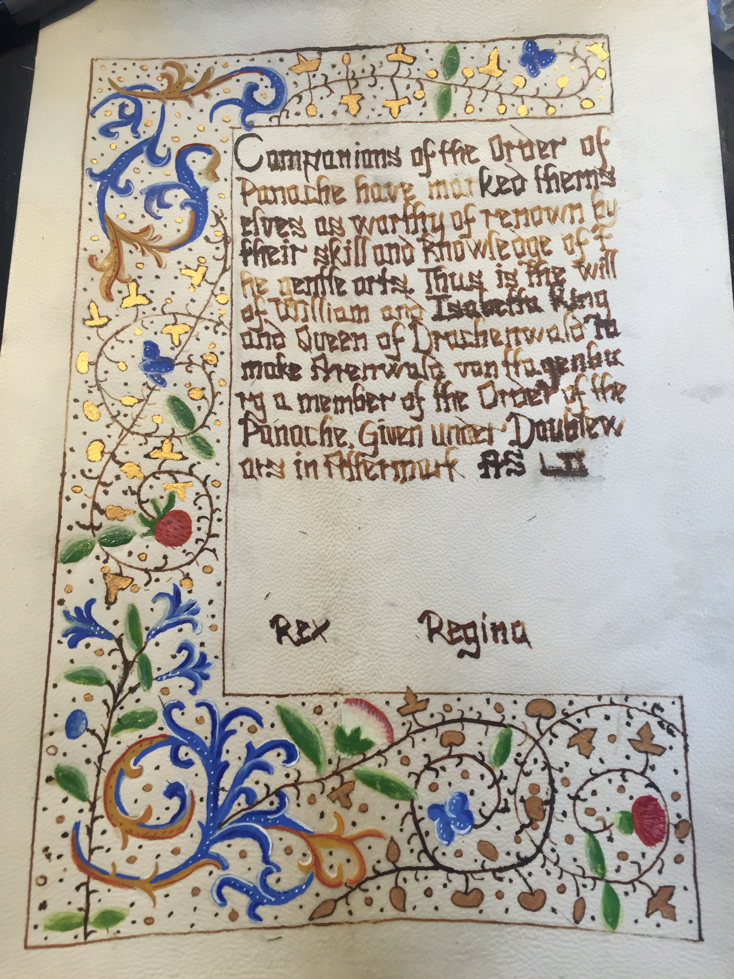 Companions of the Order of
Panache have marked thems
elves as worthy of renown by
their skill and knowledge of t
he gentle arts. Thus is the will
of William and Isabetta King
and Queen of Drachenwald to
make Arenwald von Hagenbu
rg a member of the Order of the
Panache. Given under Doublew
ars in Attermark AS LII
Rex Regina